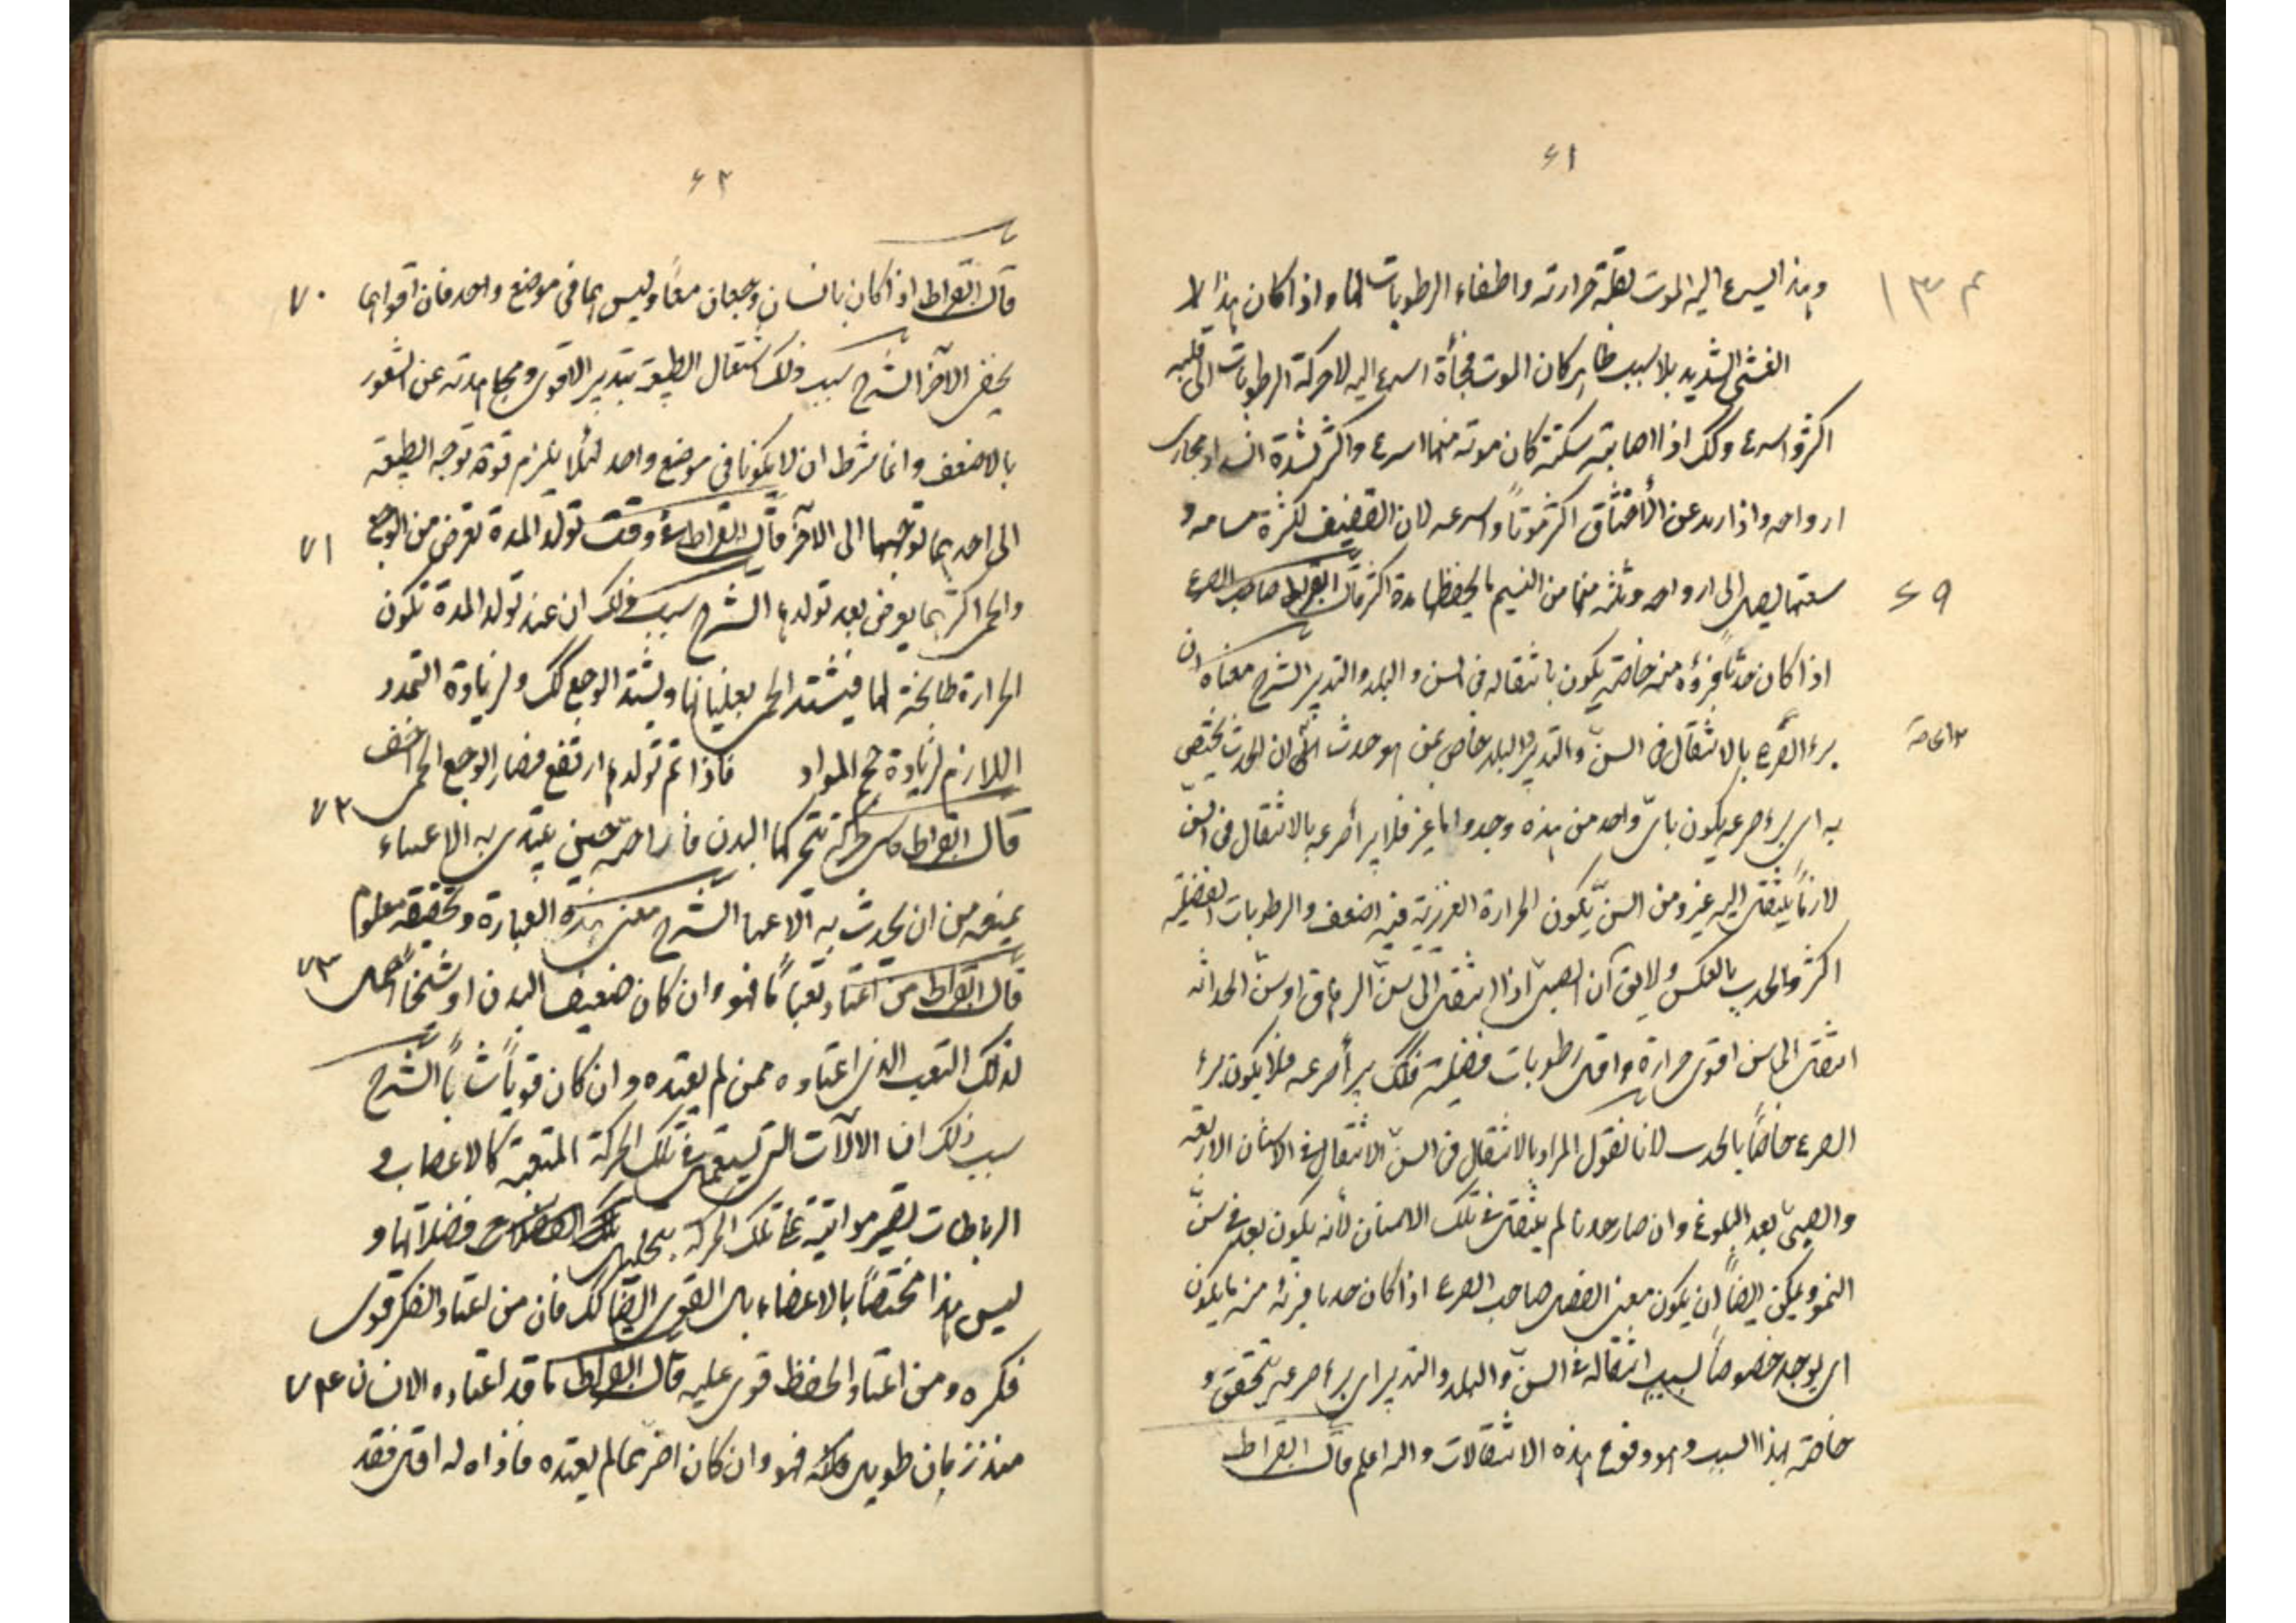 ٦١
وهذا اليسرع اليه الموت لقلة حرارته واطفاء الرطوبات لها واذا كان هذا لا
الغشى الشديد بلا سبب ظاهر كان الموت فجأة اسرع اليه لا حركة الرطوبات الى قلبه
اكثر واسرع وكك اذا اصابته سكتة كان موته منها اسرع واكثر لشدة انسداد مجارى
ارواحه واذا اريد عن الاختناق اكثر موتاً واسرعه لان القضيف لكثرة مسامه و
سعتها يصل الى ارواحه ورئته منها من النسيم ما يحفظها مدة اكثر قال ابقراط صاحب الصرع
٦٩
اذا كان حدثاً فبرؤه منه خاصة يكون بانتقاله فى السن والبلد والتدبير الشرح معناه ان
برء الصرع بالانتقال فى السن والتدبير والبلد خاص بمن هو حدث اى ان الحدث يختص
به اى برء صرعه يكون باى واحد من هذه وجد واما غيره فلا يبرأ صرعه بالانتقال فى السن
لان ما ينتقل اليه غيره من السن يكون الحرارة الغريزية فيه اضعف والرطوبات الفضلية
اكثر والحدث بالعكس ولا يق ان الصبى اذا انتقل الى سن المراهق او سن الحداثة
انتقل الى سن اقوى حرارة واقل رطوبات فضلية فكك يبرأ صرعه فلا يكون برء
الصرع خاصاً بالحدث لانا نقول المراد بالانتقال فى السن الانتقال فى الاسنان الاربعة
والصبى بعد البلوغ وان صار حدثا لم ينتقل فى تلك الاسنان لأنه يكون بعد فى سن
النمو ويمكن ايضاً ان يكون معنى الفصل صاحب الصرع اذا كان حدثا فبرئه منه ما يكون
اى يوجد خصوصاً بسبب انتقاله فى السن والبلد والتدبير اى برء صرعه يتحقق و
خاصة بهذا السبب وهو وقوع هذه الانتقالات والله اعلم قال ابقراط
٦٢
قال ابقراط اذا كان بانسان وجعان معاً وليس هما فى موضع واحد فان اقواهما
٧٠
يخفى الآخر الشرح سبب ذلك اشتغال الطبيعة بتدبير الاقوى ومجاهدته عن الشعور
بالاضعف وانما شرط ان لا يكونا فى موضع واحد لئلا يلزم قوة توجه الطبيعة
الى احدهما توجهها الى الآخر قال ابقراط فى وقت تولد المدة يعرض من الوجع
٧١
والحمى اكثر مما يعرض بعد تولدها الشرح سبب ذلك ان عند تولد المدة تكون
الحرارة طابخة لها فيشتد الحمى بغليانها ويشتد الوجع كك ولزيادة التمدد
اللازم لزيادة حجم المواد فاذا تم تولدها ارتفع فصار الوجع الحمى اخف
٧٢
قال ابقراط فى كل حركة يتحركها البدن فاراحته حين يبتدى به الاعياء
يمنعه من ان يحدث به الاعيا الشرح معنى هذه العبارة وتحققه معلوم
قال ابقراط من اعتاد تعباً ما فهو وان كان ضعيف البدن او شيخاً احمل
٧٣
لذلك التعب الذى اعتاده ممن لم يعتده وان كان قوياً شاباً الشرح
سبب ذلك ان الآلات التى تستعمل فى تلك الحركة المتعبة كالاعصاب و
الرباطات يصير مواتية على تلك الحركة بتحليل فضلاتها و
ليس هذا مختصاً بالاعضاء بل القوى ايضاً كك فان من اعتاد الفكر قوى
فكره ومن اعتاد الحفظ قوى عليه قال ابقراط ما قد اعتاده الانسان
٧٤
منذ زمان طويل فهو وان كان اضر مما لم يعتده فاذاه له اقل فقد